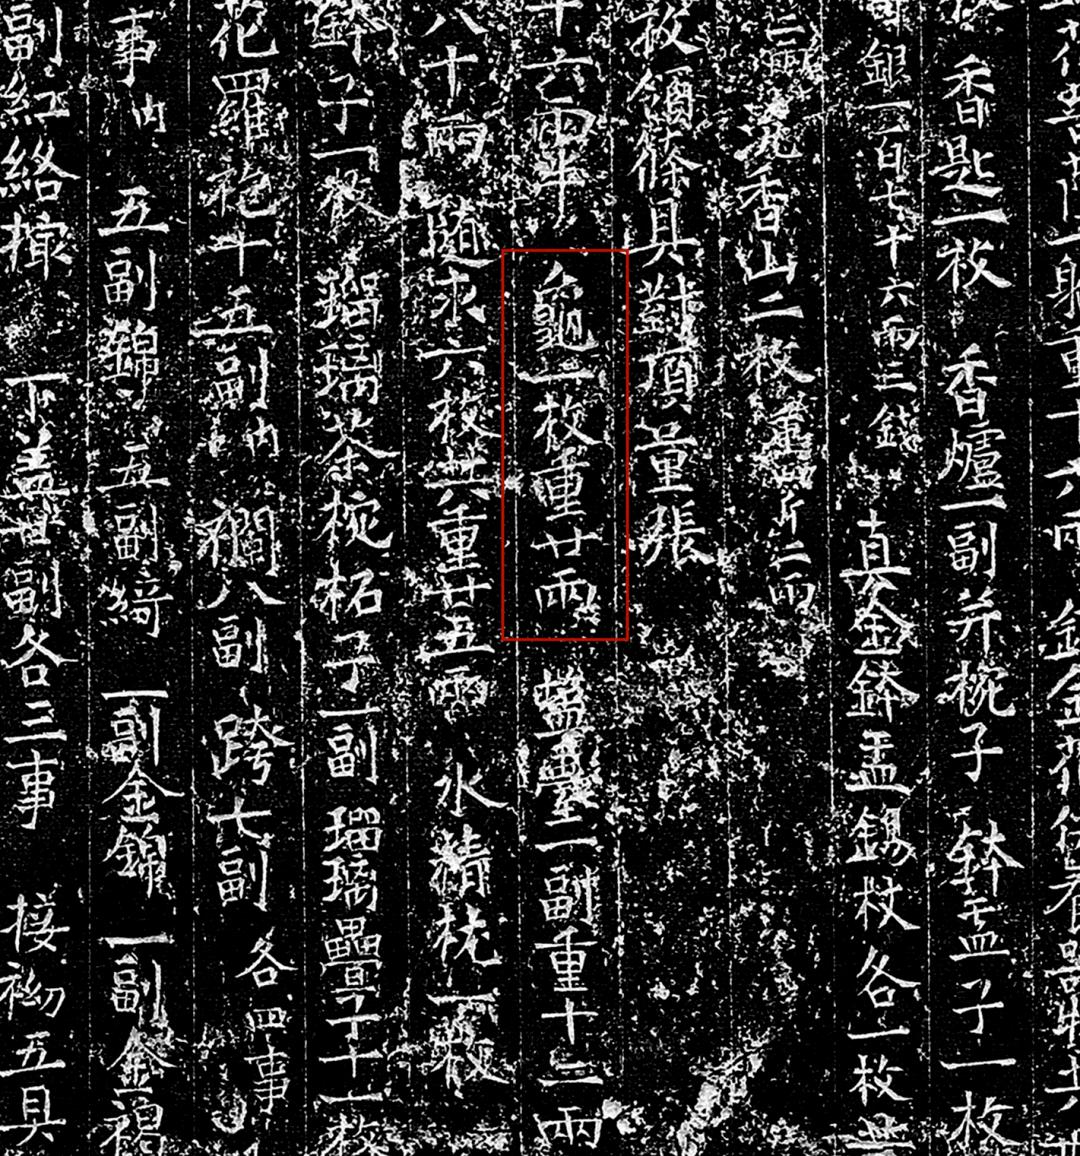 花菩薩一軀重十六兩 銀金花供養器物共
枚 香匙一枚 香爐一副并椀子 鉢盂子一枚
銀一百七十六兩三錢 真金鉢盂錫杖各一枚共
三兩 沉香山二枚重 斤二兩
枚頷篠具對頂量張
十六單 龜一枚重廿兩 鹽臺一副重十二兩
八十兩 隨求六枚共重廿五兩 水精枕一枚
鉼子一枚 瑠璃茶椀柘子一副 瑠璃疊子十一枚
花羅袍十五副内 襴八副 跨七副 各四事
事内 五副錦 五副綺 一副金錦 一副金褐
副紅絡撩 下蓋 副各三事 接袎五具